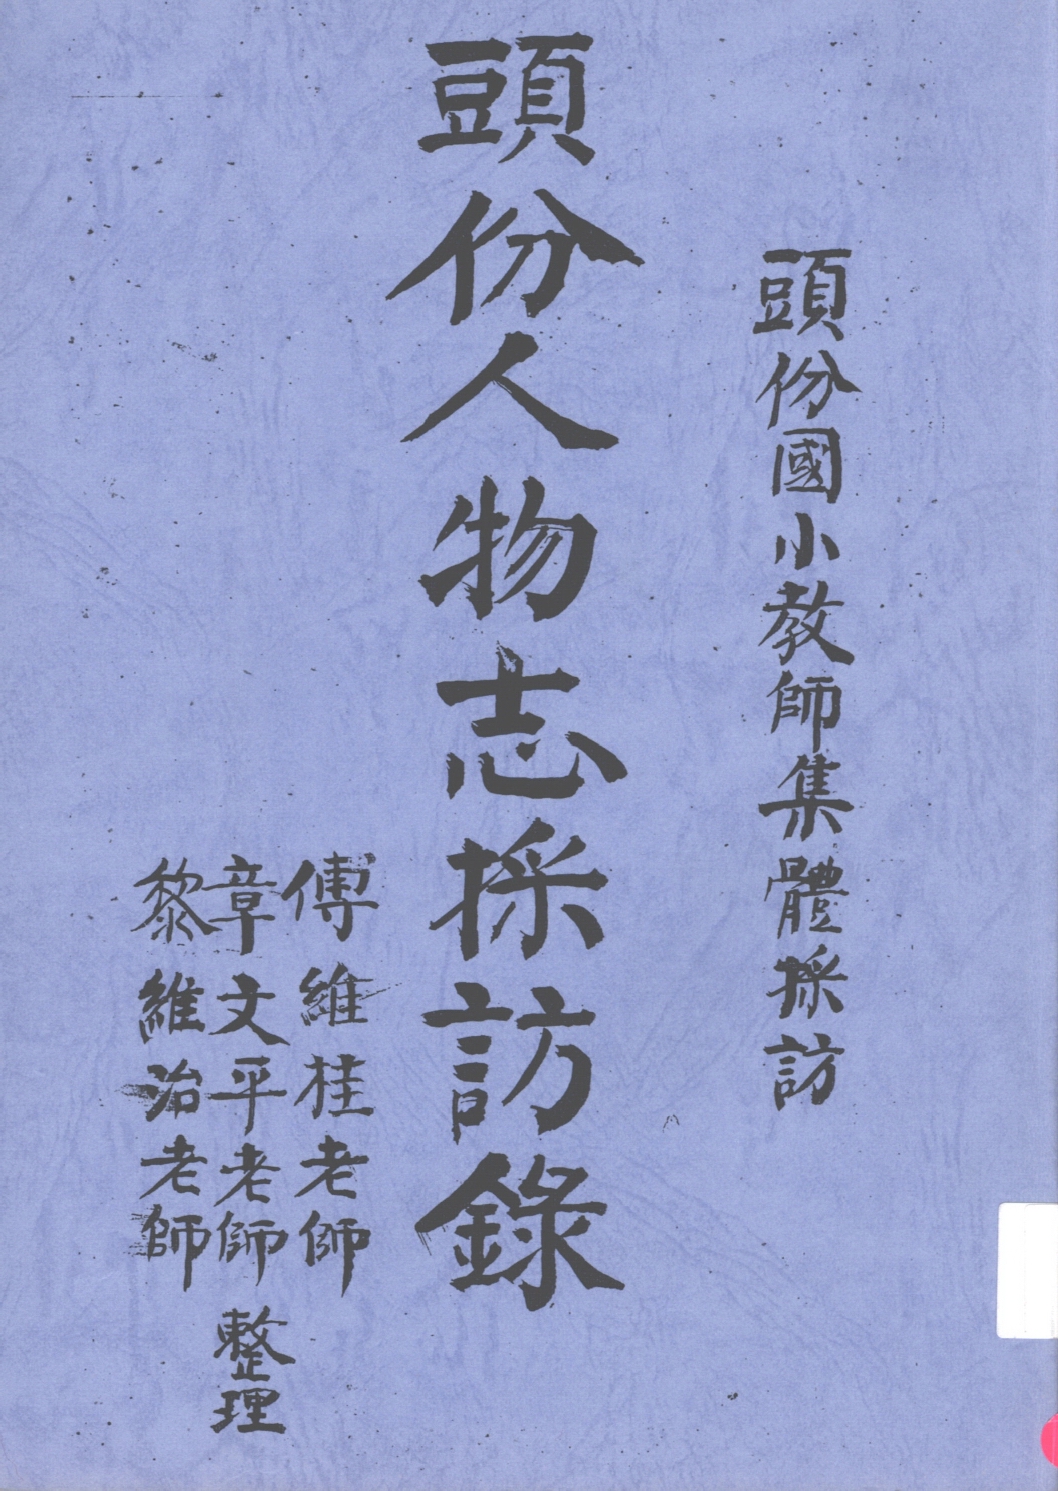 頭份國小教師集體採訪
頭份人物志採訪錄
傅維桂老師
章文平老師
黎維治老師
整理